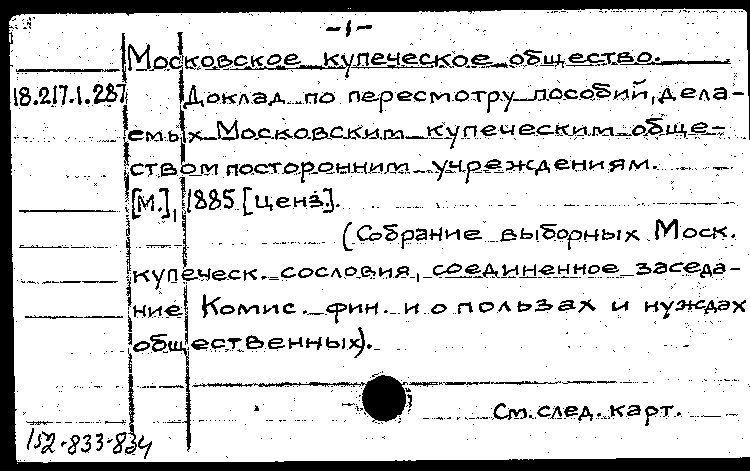 -1-
Московское купеческое общество.
18.217.1.287 Доклад по пересмотру пособий, дела-
емых Московским купеческим обще-
ством посторонним учреждениям.
[М.], 1885 [ценз].
(Собрание выборных Моск.
купеческ. сословия, соединенное заседа-
ние Комис. фин. и о пользах и нуждах
общественных).
См. след. карт.
152-833-834